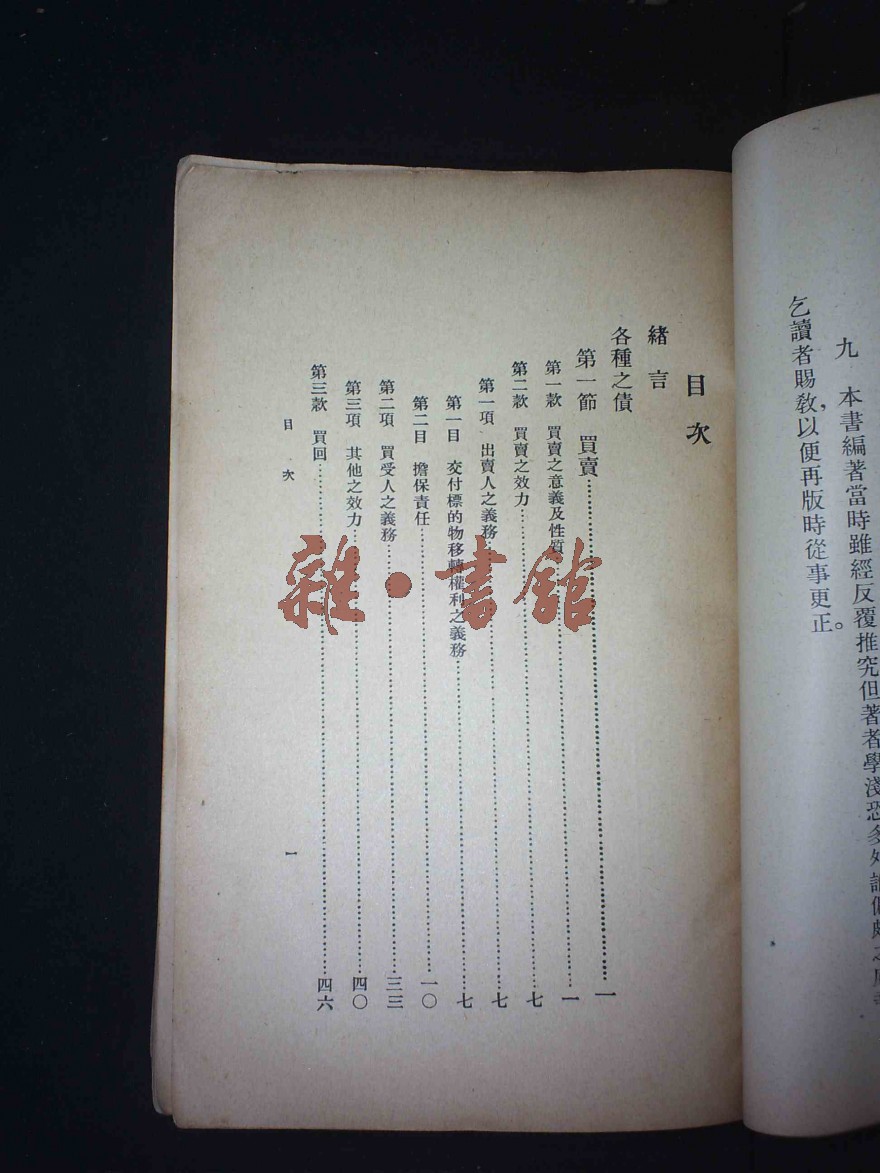 九　本書編著當時雖經反覆推究但著者學淺恐多
乞讀者賜教，以便再版時從事更正。
目次
緒言
各種之債
第一節　買賣…………一
第一款　買賣之意義及性質…………一
第二款　買賣之效力…………七
第一項　出賣人之義務…………七
第一目　交付標的物移轉權利之義務…………七
第二目　擔保責任…………一〇
第二項　買受人之義務…………三三
第三項　其他之效力…………四〇
第三款　買回…………四六
目次　一
雜·書館